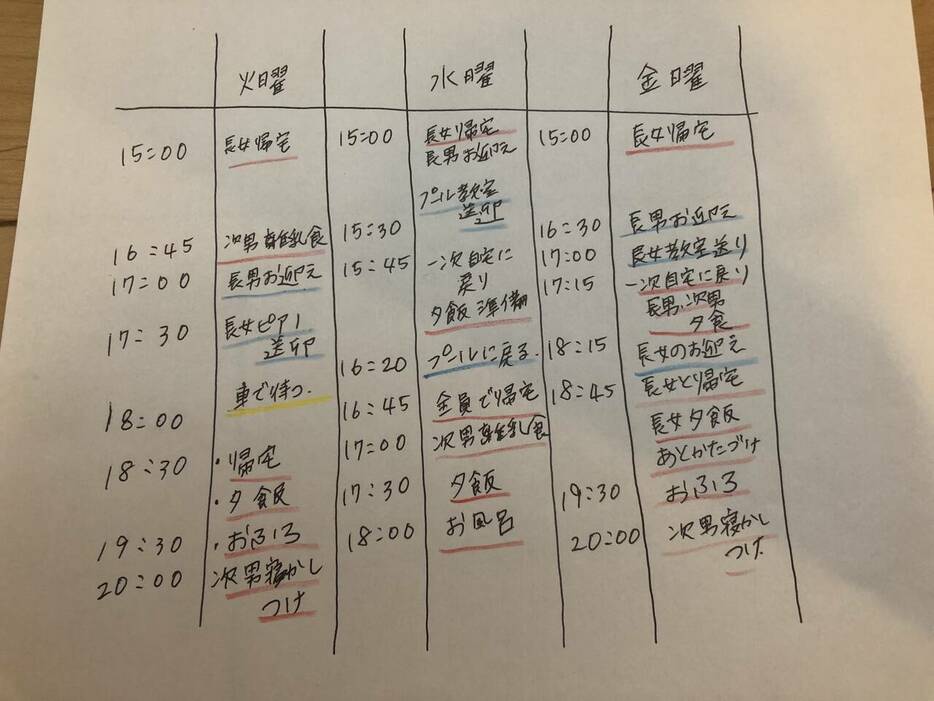 火曜
水曜
金曜
15:00 長女帰宅
16:45 次男離乳食
17:00 長男お迎え
17:30 長女ピアノ
送迎
18:00 車で待つ.
18:30 ・帰宅
・夕食
19:30 ・おふろ
20:00 次男寝かし
つけ
15:00 長女帰宅
長男お迎え
プール教室
送迎
15:30
15:45 一次自宅に
戻り
夕飯準備
16:20 プールに戻る.
16:45 全員で帰宅
17:00 次男離乳食
17:30 夕飯
18:00 お風呂
15:00 長女帰宅
16:30 長男お迎え
17:00 長女教室送り
17:15 一次自宅に戻り
長男.次男
夕食
18:15 長女のお迎え
18:45 長女と帰宅
長女夕飯
あとかたづけ
19:30 おふろ
20:00 次男寝かし
つけ